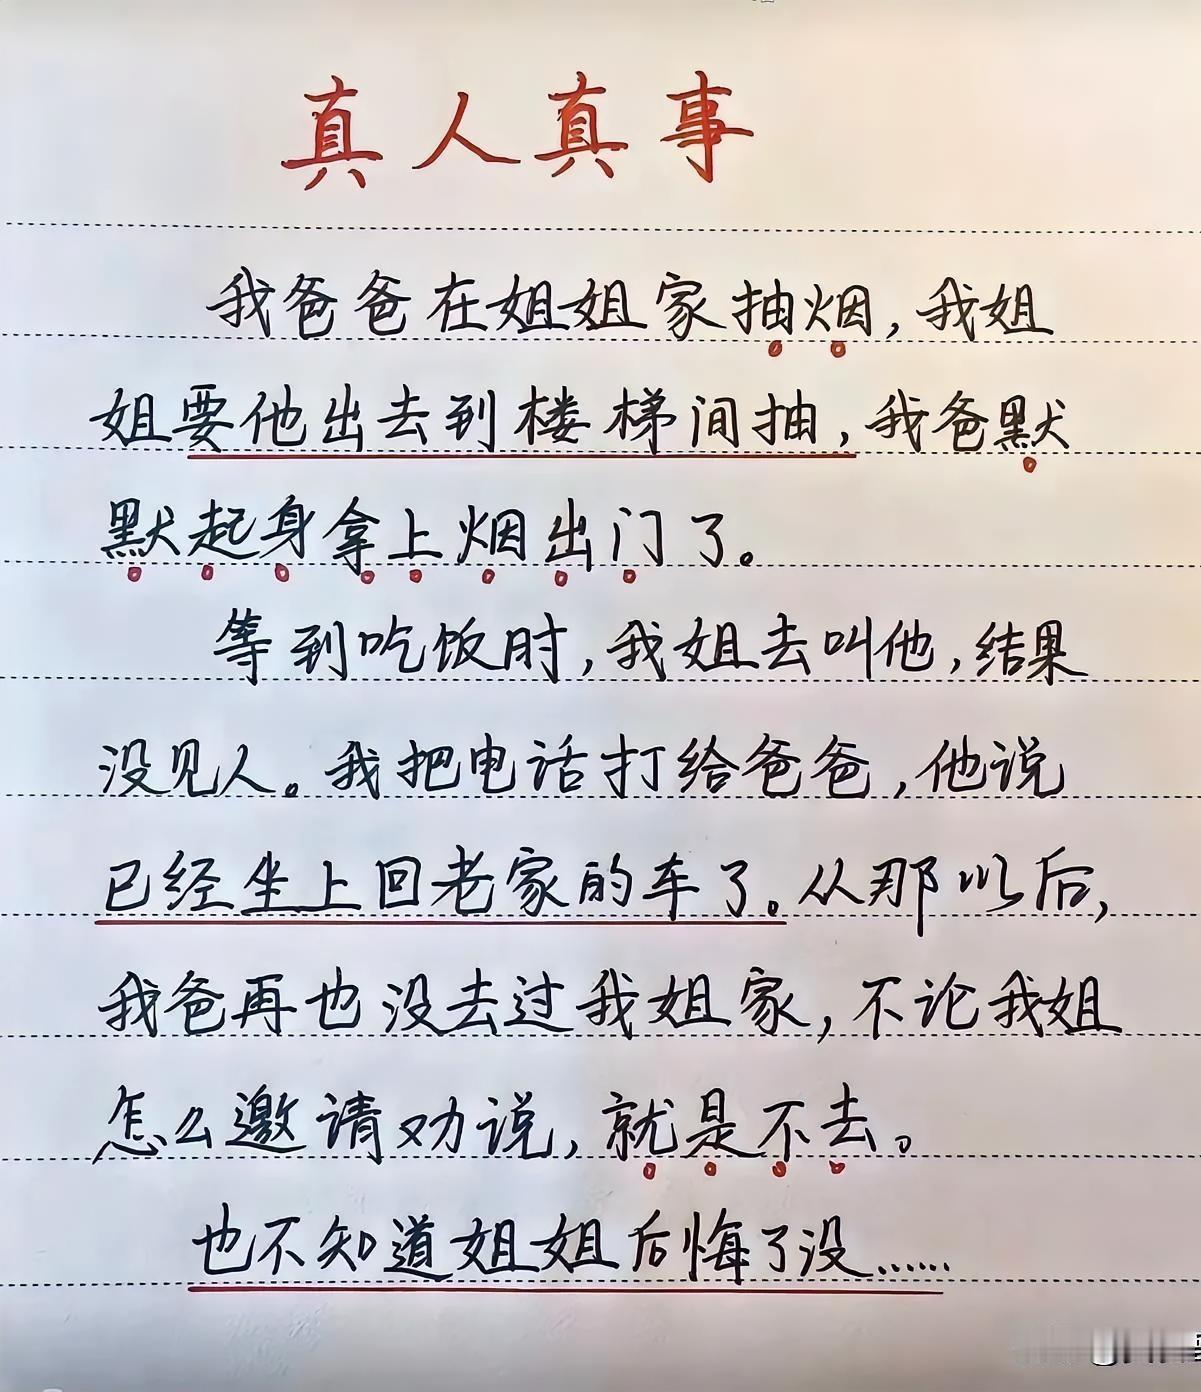 真人真事
我爸爸在姐姐家抽烟,我姐
姐要他出去到楼梯间抽,我爸默
默起身拿上烟出门了。
等到吃饭时,我姐去叫他,结果
没见人。我把电话打给爸爸,他说
已经坐上回老家的车了。从那以后,
我爸再也没去过我姐家,不论我姐
怎么邀请劝说,就是不去。
也不知道姐姐后悔了没……